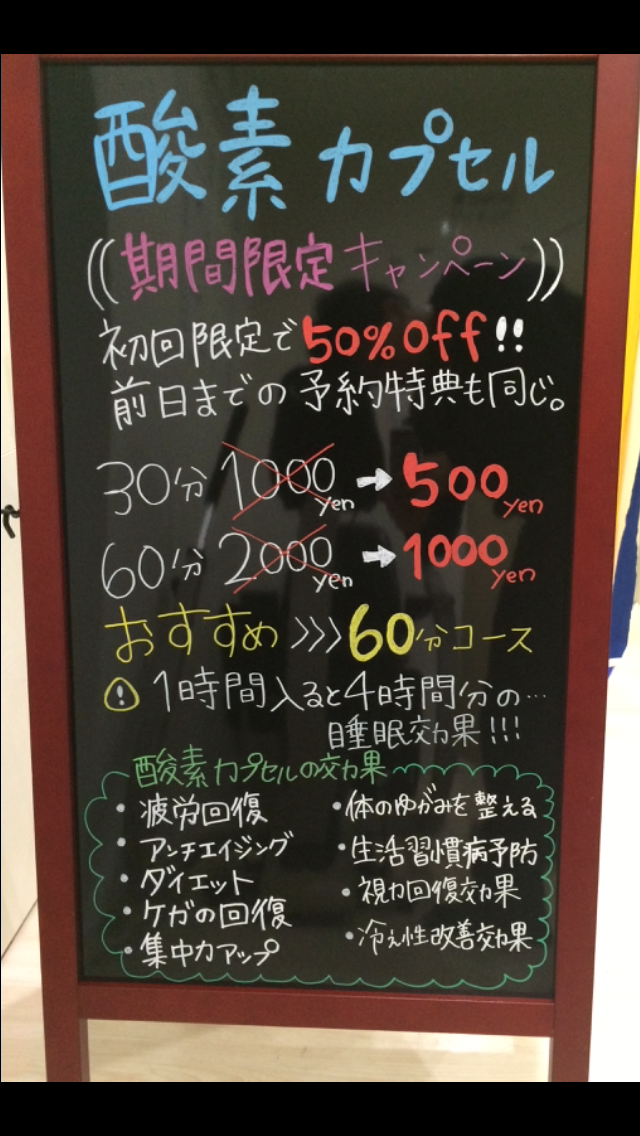 酸素カプセル
((期間限定キャンペーン))
初回限定で50%Off!!
前日までの予約特典も同じ。
30分 1000yen → 500yen
60分 2000yen → 1000yen
おすすめ >>> 60分コース
! 1時間入ると4時間分の…
睡眠効果!!!
酸素カプセルの効果
・疲労回復
・アンチエイジング
・ダイエット
・ケガの回復
・集中力アップ
・体のゆがみを整える
・生活習慣病予防
・視力回復効果
・冷え性改善効果